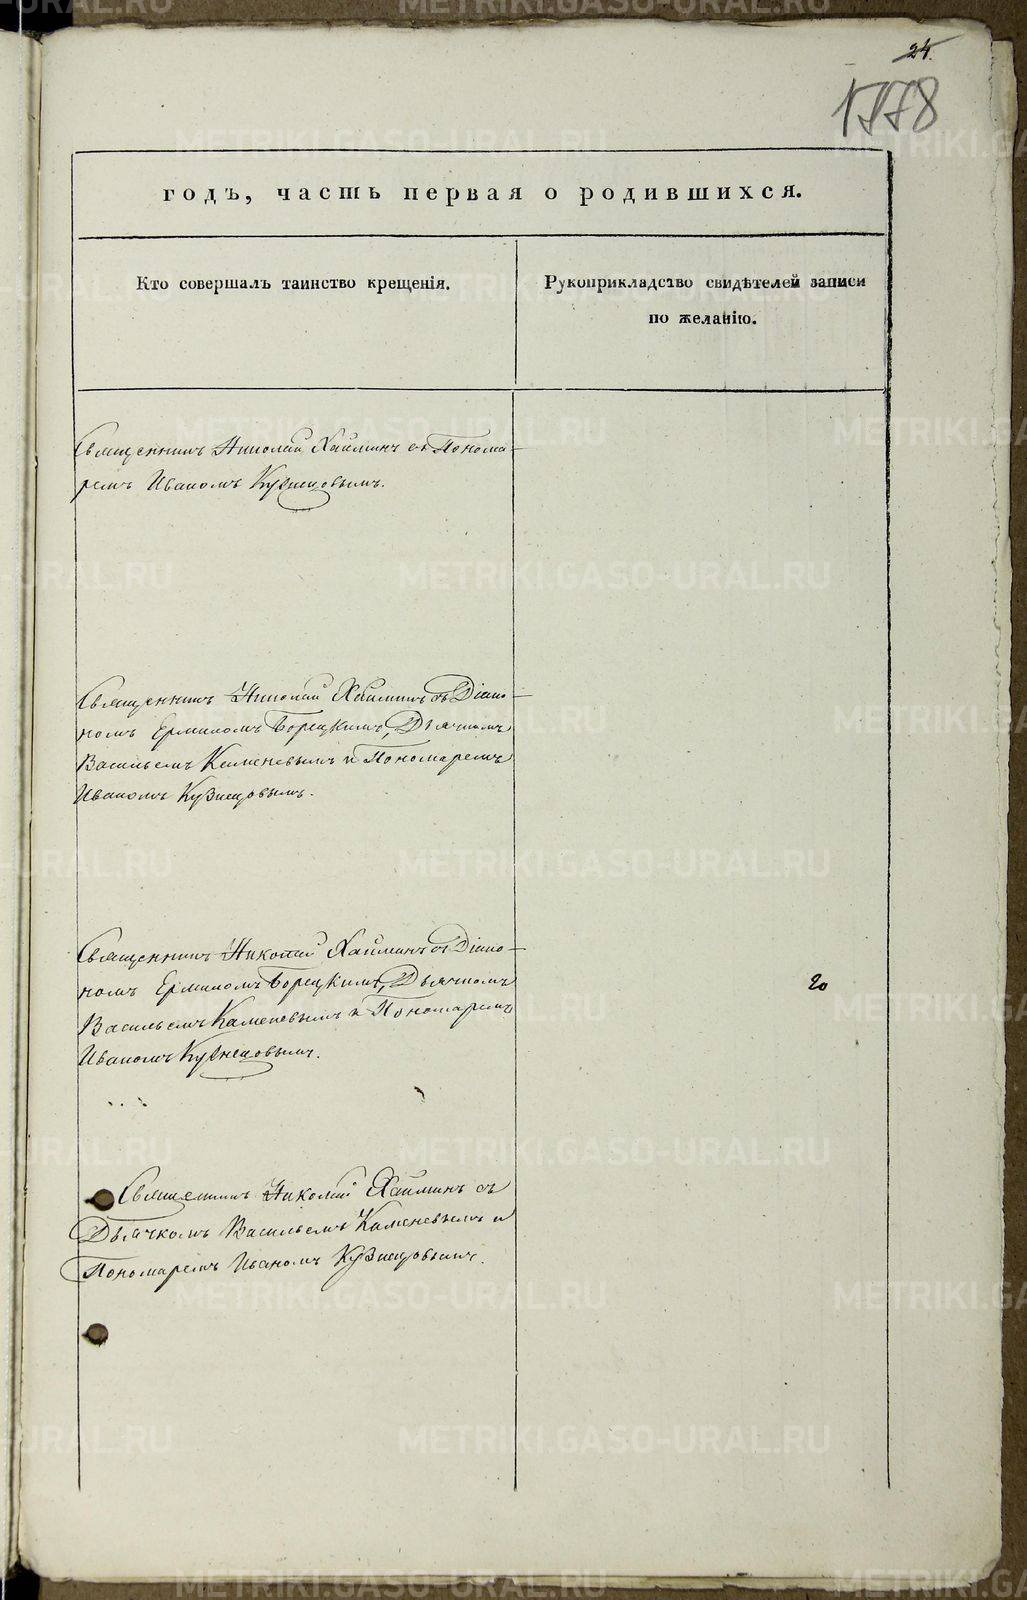 24.
1778
годъ, часть первая о родившихся.
Кто совершалъ таинство крещенія.
Рукоприкладство свидѣтелей записи
по желанію.
Священникъ Николай Хайминъ съ Понома-
ремъ Иваномъ Кузнецовымъ.
Священникъ Николай Хайминъ съ Діако-
номъ Ермиломъ Борецкимъ, Дьячкомъ
Васильемъ Каменевымъ и Пономаремъ
Иваномъ Кузнецовымъ.
Священникъ Николай Хайминъ съ Діако-
номъ Ермиломъ Борецкимъ, Дьячкомъ
Васильемъ Каменевымъ и Пономаремъ
Иваномъ Кузнецовымъ.
20
Священникъ Николай Хайминъ съ
Дьячкомъ Васильемъ Каменевымъ и
Пономаремъ Иваномъ Кузнецовымъ.
METRIKI.GASO-URAL.RU